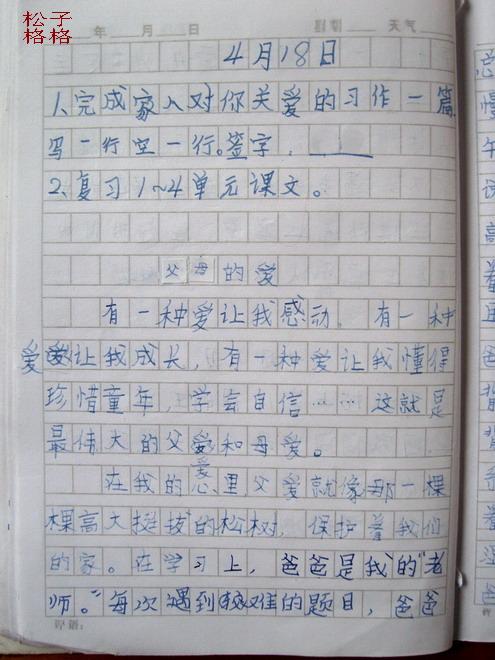 松子
格格
年 月 日 星期 天气
4月18日
1、完成家人对你关爱的习作一篇
写一行空一行。签字：
2、复习1~4单元课文。
父母的爱
有一种爱让我感动，有一种
爱让我成长，有一种爱让我懂得
珍惜童年，学会自信……这就是
最伟大的父爱和母爱。
在我的心里，父爱就像那一棵
棵高大挺拔的松树，保护着我们
的家。在学习上，爸爸是我的“老
师。”每次遇到较难的题目，爸爸
评语：